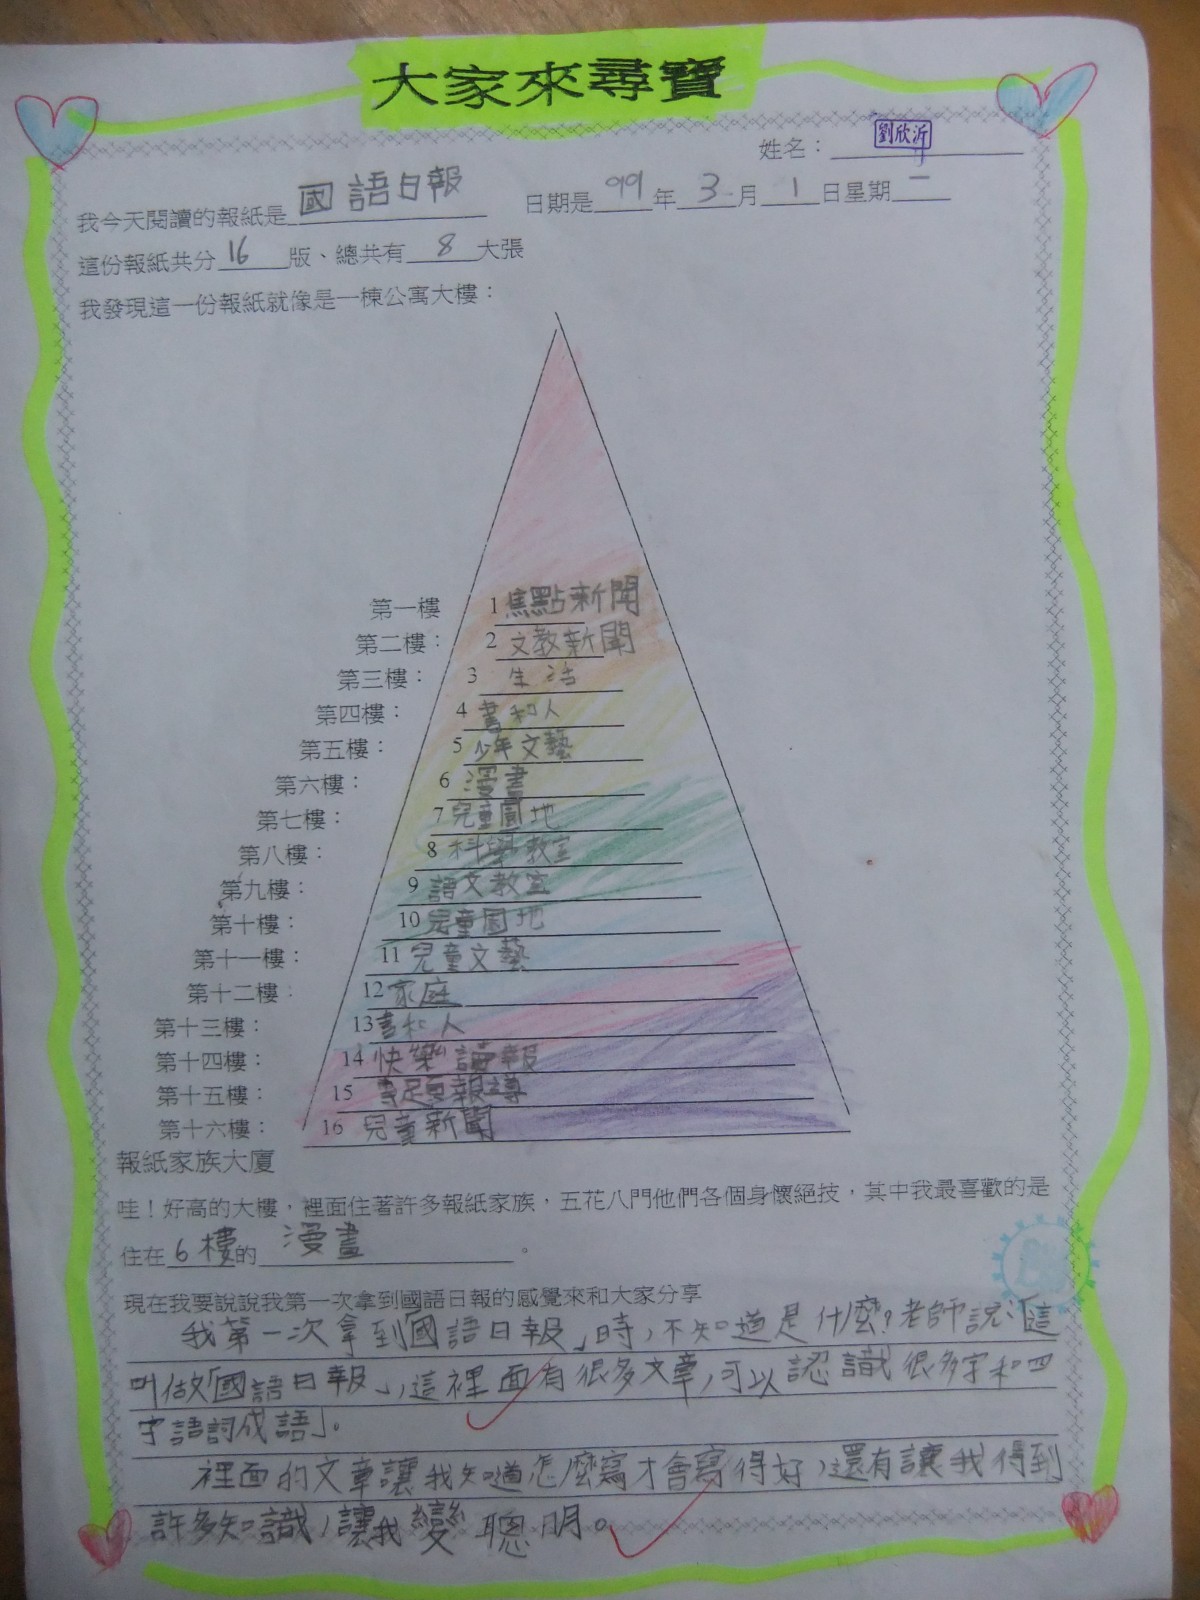 大家來尋寶
姓名：劉欣沂
我今天閱讀的報紙是國語日報 日期是99年3月1日星期一
這份報紙共分16版、總共有8大張
我發現這一份報紙就像是一棟公寓大樓：
第一樓 1焦點新聞
第二樓： 2文教新聞
第三樓： 3生活
第四樓： 4書和人
第五樓： 5少年文藝
第六樓： 6漫畫
第七樓： 7兒童園地
第八樓： 8科學教室
第九樓： 9語文教室
第十樓： 10兒童園地
第十一樓： 11兒童文藝
第十二樓： 12家庭
第十三樓： 13書和人
第十四樓： 14快樂讀報
第十五樓： 15專題報導
第十六樓： 16兒童新聞
報紙家族大廈
哇！好高的大樓，裡面住著許多報紙家族，五花八門他們各個身懷絕技，其中我最喜歡的是
住在6樓的漫畫。
現在我要說說我第一次拿到國語日報的感覺來和大家分享
我第一次拿到「國語日報」時，不知道是什麼？老師說：「這
叫做「國語日報」，這裡面有很多文章，可以認識很多字和四
字語詞成語」。
裡面的文章讓我知道怎麼寫才會寫得好，還有讓我得到
許多知識，讓我變聰明。